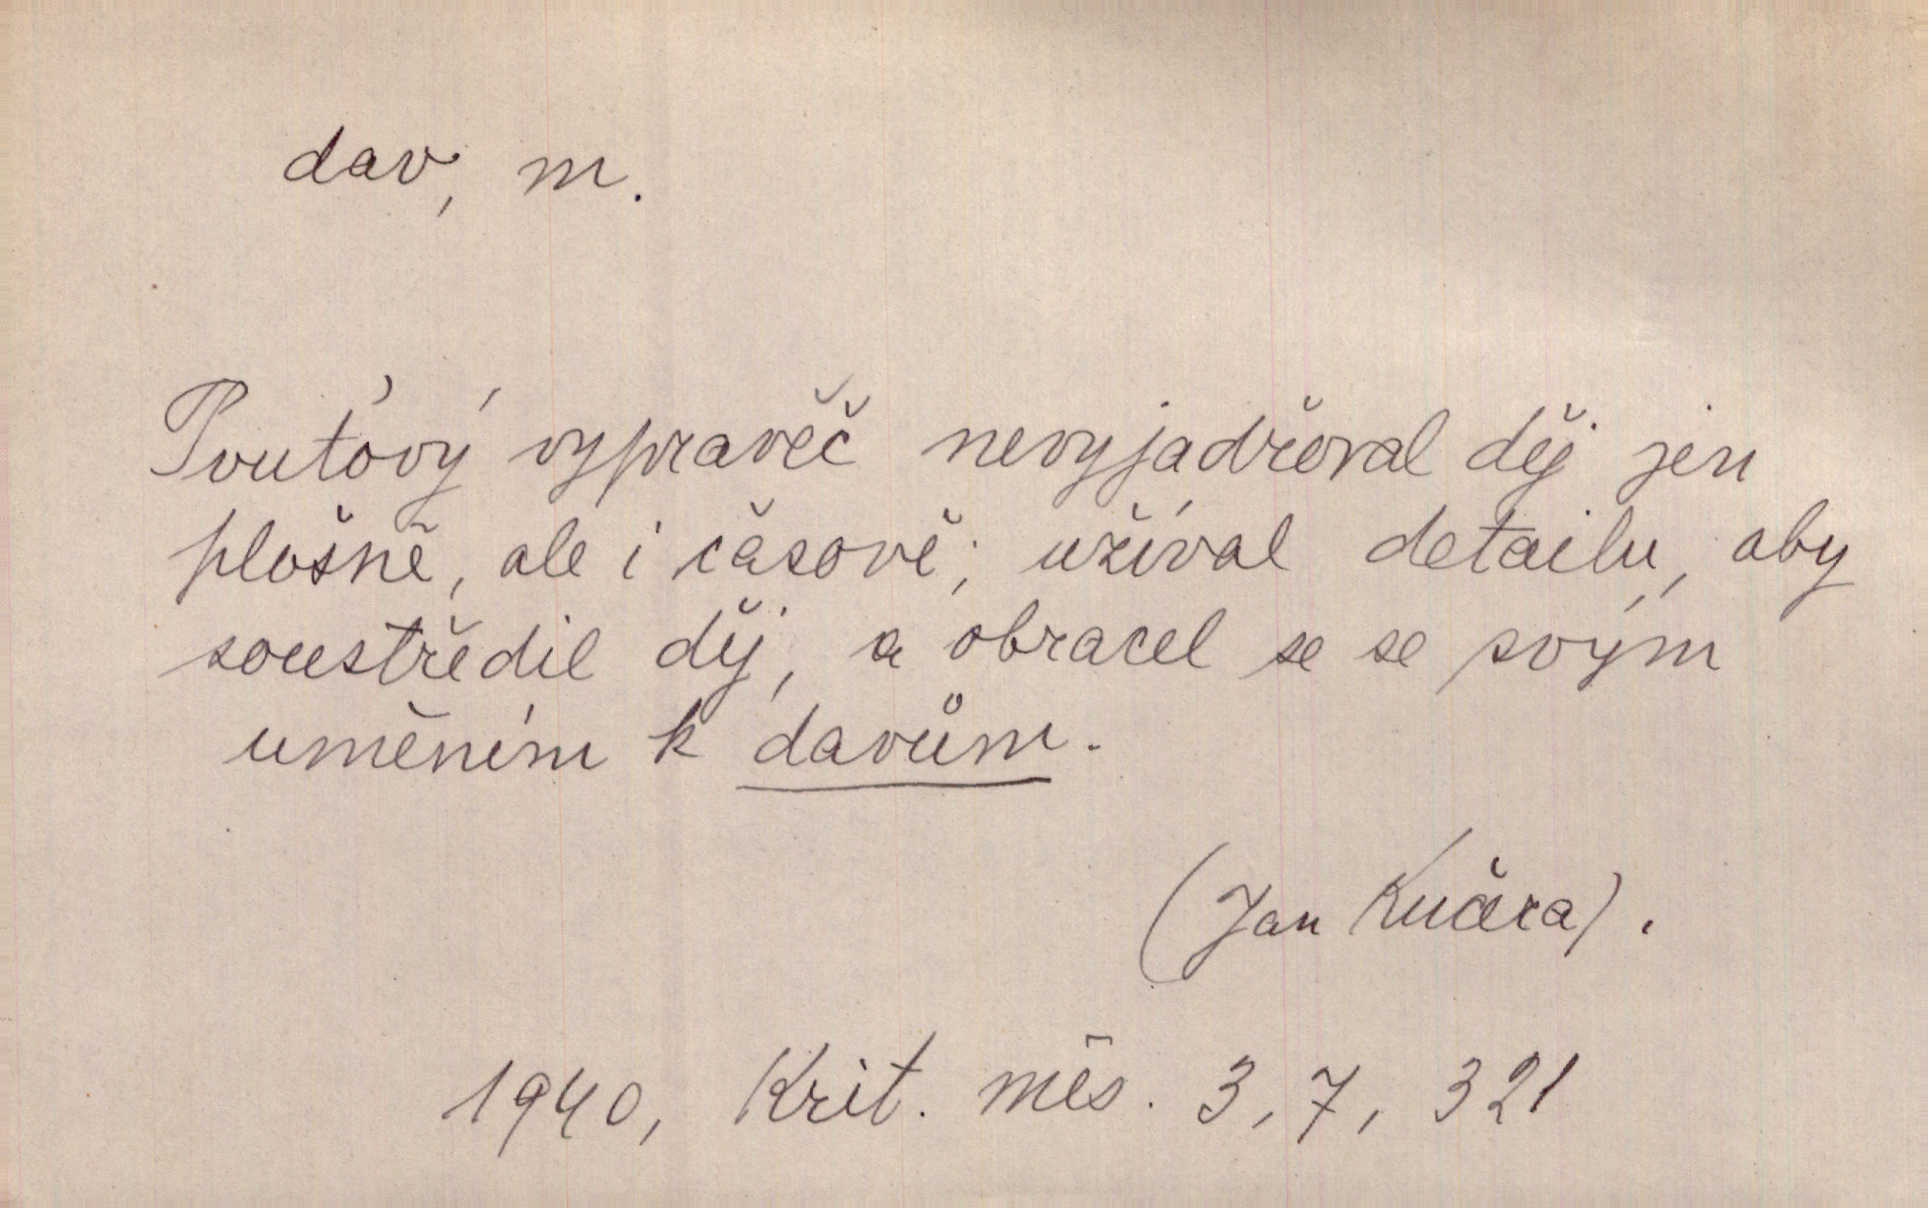 dav, m.
Pouťový vypravěč nevyjadřoval děj jen
plošně, ale i časově; užíval detailu, aby
soustředil děj, a obracel se se svým
uměním k davům.
(Jan Kučera).
1940, Krit. měs. 3, 7, 321